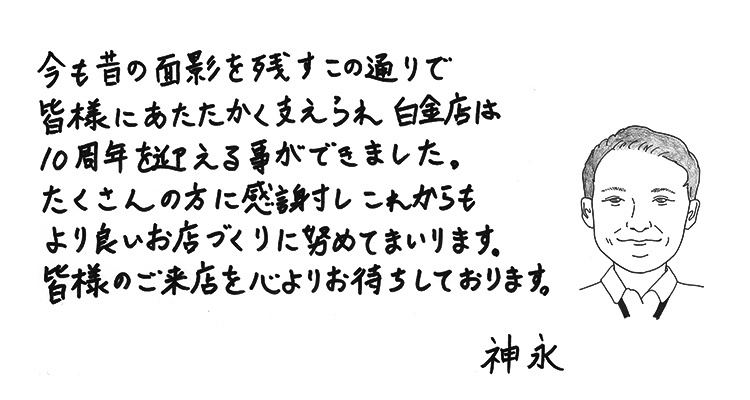 今も昔の面影を残すこの通りで
皆様にあたたかく支えられ 白金店は
10周年を迎える事ができました。
たくさんの方に感謝し これからも
より良いお店づくりに努めてまいります。
皆様のご来店を心よりお待ちしております。
神永